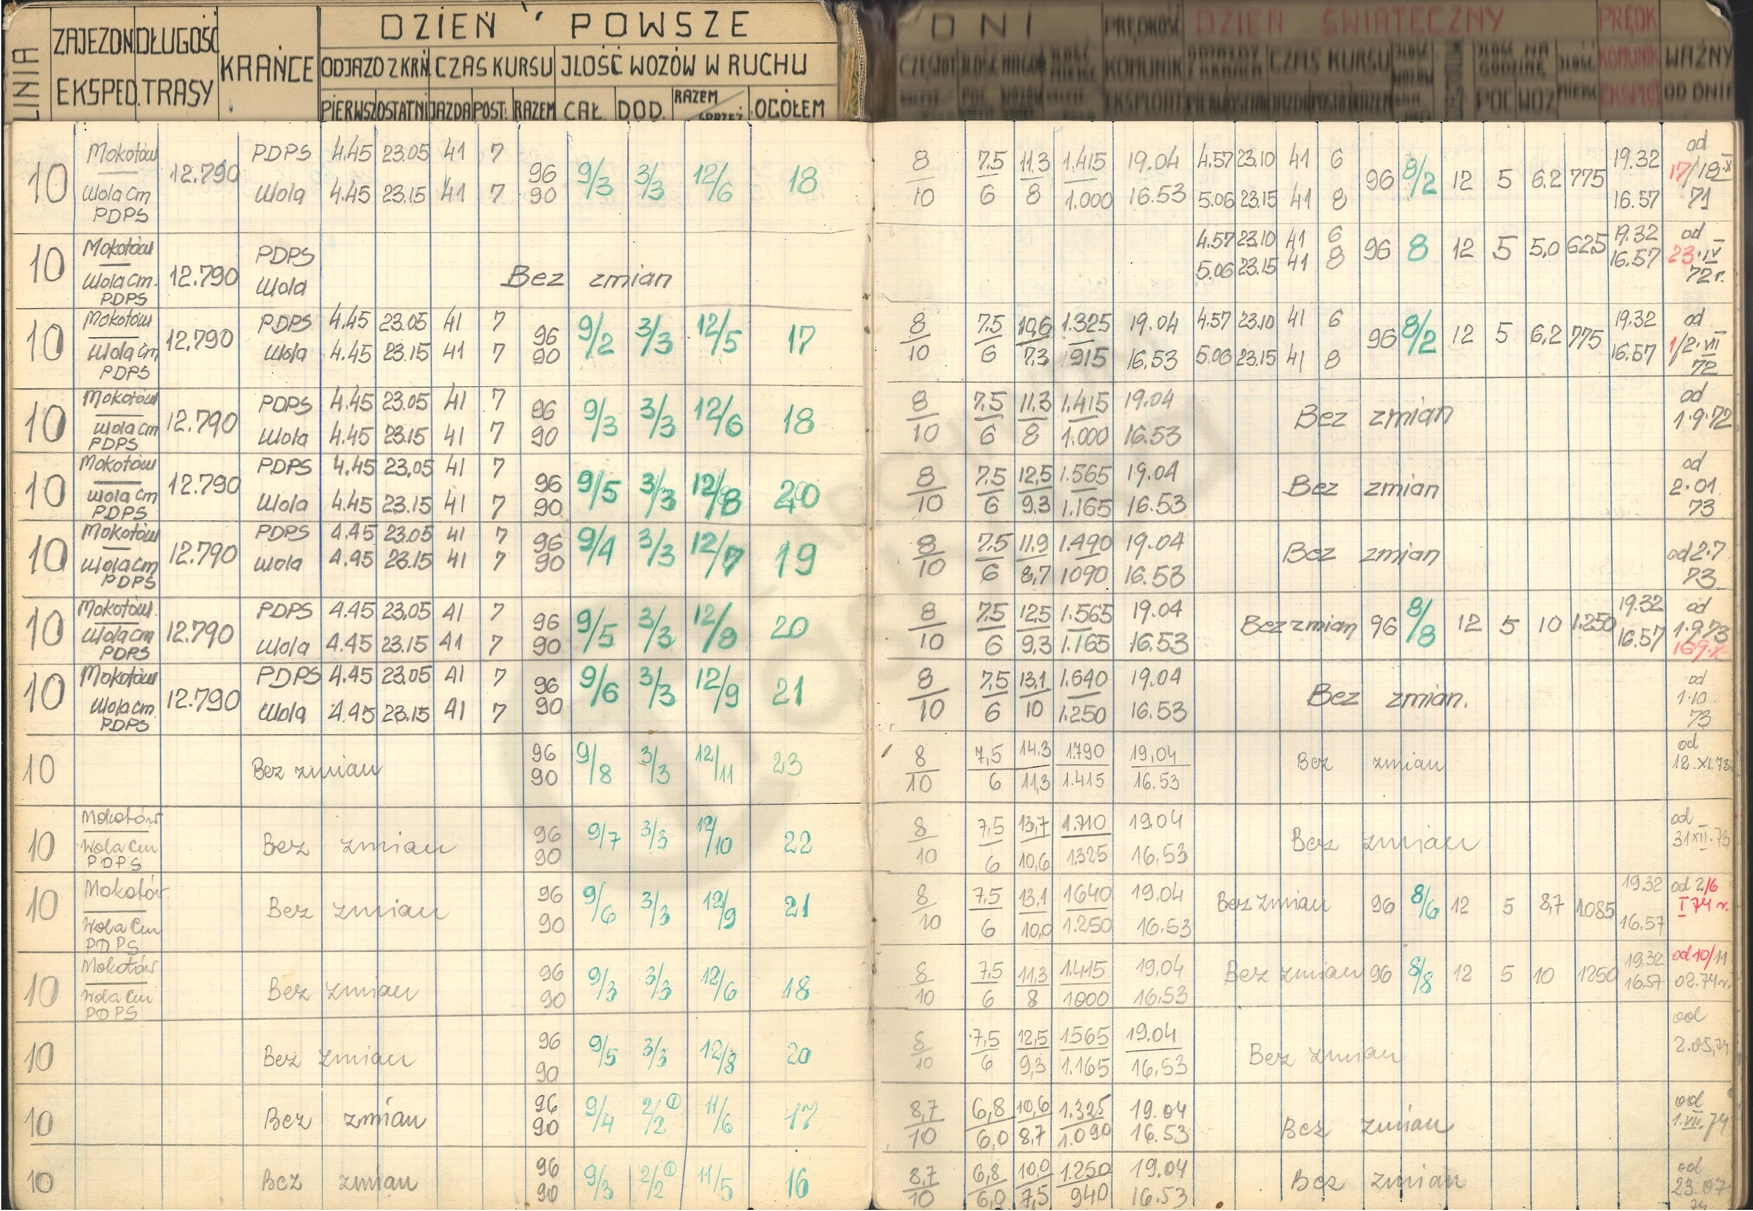 DZIEŃ POWSZE DNI
LINIA ZAJEZDN. DŁUGOŚĆ KRAŃCE ODJAZD Z KRŃ CZAS KURSU JLOŚĆ WOZÓW W RUCHU PRĘDKOŚĆ DZIEŃ ŚWIĄTECZNY PRĘDK
EKSPED. TRASY PIERWSZ OSTATNI JAZDA POST. RAZEM CAŁ. DOD. RAZEM OGÓŁEM KOMUNIK CZAS KURSU KOMUNIK WAŻNY
EKSPLOAT POC WOZ EKSPL OD DNIA
Mokotów PDPS 4.45 23.05 41 7 96 8 7.5 11.3 1.415 19.04 4.57 23.10 41 6 19.32 od
10 12.790 9/3 3/3 12/6 18 96 8/2 12 5 6.2 775 17/18.X
Wola Cm PDPS Wola 4.45 23.15 41 7 90 10 6 8 1.000 16.53 5.06 23.15 41 8 16.57 71
Mokotów PDPS 4.57 23.10 41 6 19.32 od
10 12.790 Bez zmian 96 8 12 5 5,0 625 23.IV
Wola Cm. PDPS Wola 5.06 23.15 41 8 16.57 72r.
Mokotów PDPS 4.45 23.05 41 7 96 8 7.5 10,6 1.325 19.04 4.57 23.10 41 6 19.32 od
10 12.790 9/2 3/3 12/5 17 96 8/2 12 5 6,2 775 1/2.VII
Wola Cm PDPS Wola 4.45 23.15 41 7 90 10 6 7.3 915 16.53 5.06 23.15 41 8 16.57 72
Mokotów PDPS 4.45 23.05 41 7 96 8 7,5 11.3 1.415 19.04 od
10 12.790 9/3 3/3 12/6 18 Bez zmian 1.9.72
Wola Cm PDPS Wola 4.45 23.15 41 7 90 10 6 8 1.000 16.53
Mokotów PDPS 4.45 23,05 41 7 96 8 7.5 12,5 1.565 19.04 od
10 12.790 9/5 3/3 12/8 20 Bez zmian 2.01.
Wola Cm PDPS Wola 4.45 23.15 41 7 90 10 6 9.3 1.165 16.53 73
Mokotów PDPS 4.45 23.05 41 7 96 8 7.5 11.9 1.490 19.04
10 12.790 9/4 3/3 12/7 19 Bez zmian od 2.7
Wola Cm PDPS Wola 4.45 23.15 41 7 90 10 6 8,7 1090 16.53 73
Mokotów. PDPS 4.45 23,05 41 7 96 8 7.5 12.5 1.565 19.04 19.32 od
10 12.790 9/5 3/3 12/8 20 Bez zmian 96 8/8 12 5 10 1.250 1.9.73
Wola Cm PDPS Wola 4.45 23.15 41 7 90 10 6 9,3 1.165 16.53 16.57
Mokotów PDPS 4.45 23.05 41 7 96 8 7,5 13,1 1.640 19.04 od
10 12.790 9/6 3/3 12/9 21 Bez zmian. 1.10
Wola Cm. PDPS Wola 4.45 23.15 41 7 90 10 6 10 1.250 16.53 73
96 8 7,5 14.3 1.790 19,04 od
10 Bez zmian 9/8 3/3 12/11 23 Bez zmian 12.XI.73
90 10 6 11,3 1.415 16.53
Mokotów 96 8 7,5 13,7 1.710 19.04 od
10 Bez zmian 9/7 3/3 12/10 22 Bez zmian 31 XII.73
Wola Cm PDPS 90 10 6 10,6 1325 16,53
Mokotów 96 8 7,5 13,1 1640 19.04 19.32 od 2/6
10 Bez zmian 9/6 3/3 12/9 21 Bez zmian 96 8/6 12 5 8,7 1.085 I 74 r.
Wola Cm PDPS 90 10 6 10,0 1.250 16.53 16,57
Mokotów 96 8 7,5 11,3 1.415 19,04 19.32 od 10/11
10 Bez zmian 9/3 3/3 12/6 18 Bez zmian 96 8/8 12 5 10 1250
Wola Cm PDPS 90 10 6 8 1000 16.53 16,57 02.74r.
96 8 7,5 12,5 1.565 19.04 od
10 Bez zmian 9/5 3/3 12/8 20 Bez zmian 2.05.74
90 10 6 9,3 1.165 16,53
96 8,7 6,8 10,6 1.325 19.04 od
10 Bez zmian 9/4 2/2 ① 11/6 17 Bez zmian 1.VII.74
90 10 6,0 8,7 1.090 16.53
96 8,7 6,8 10,0 1.250 19.04 od
10 Bez zmian 9/3 2/2 ① 11/5 16 Bez zmian 23.07
90 10 6,0 7,5 940 16.53 74